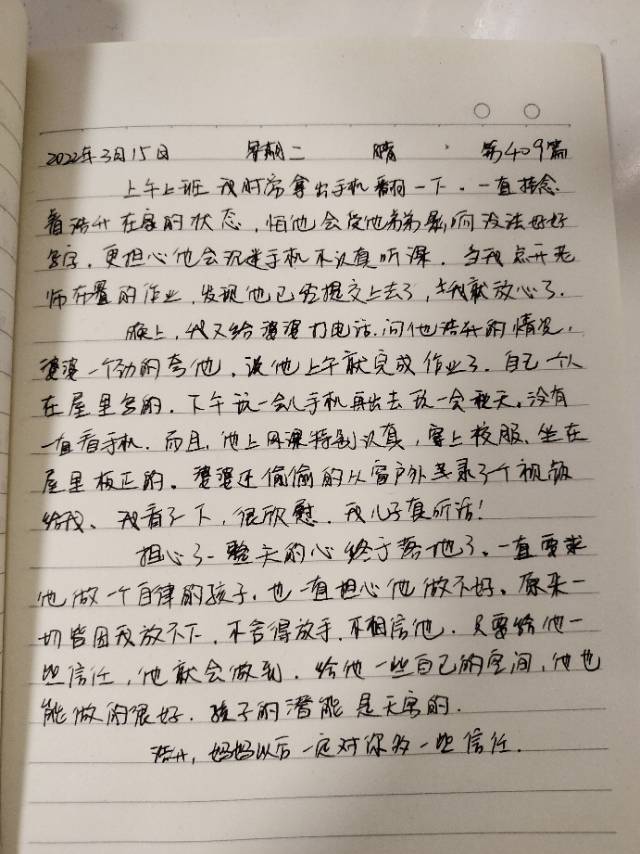 2022年3月15日 星期二 晴 第409篇
上午上班,我时常拿出手机翻一下。一直挂念
着浩升在家的状态,怕他会受他弟弟影响没法好好
写字,更担心他会沉迷手机不认真听课。当我点开老
师布置的作业,发现他已经提交上去了,我就放心了。
晚上,我又给婆婆打电话,问他浩升的情况,
婆婆一个劲的夸他,说他上午就完成作业了。自己一个人
在屋里写的。下午玩一会儿手机再出去玩一会 天。没有
一直看手机。而且,他上网课特别认真,穿上校服,坐在
屋里板正的。婆婆还偷偷的从窗户外 录了个视频
给我。我看了一下,很欣慰。我儿子真听话!
担心了一整天的心终于落地了。一直要求
他做一个自律的孩子,也一直担心他做不好。原来一
切皆因我放不下,不舍得放手,不相信他。只要给他一
些信任,他就会做到。给他一些自己的空间,他也
能做的很好。孩子的潜能是无穷的。
浩升,妈妈以后一定对你多一些信任。